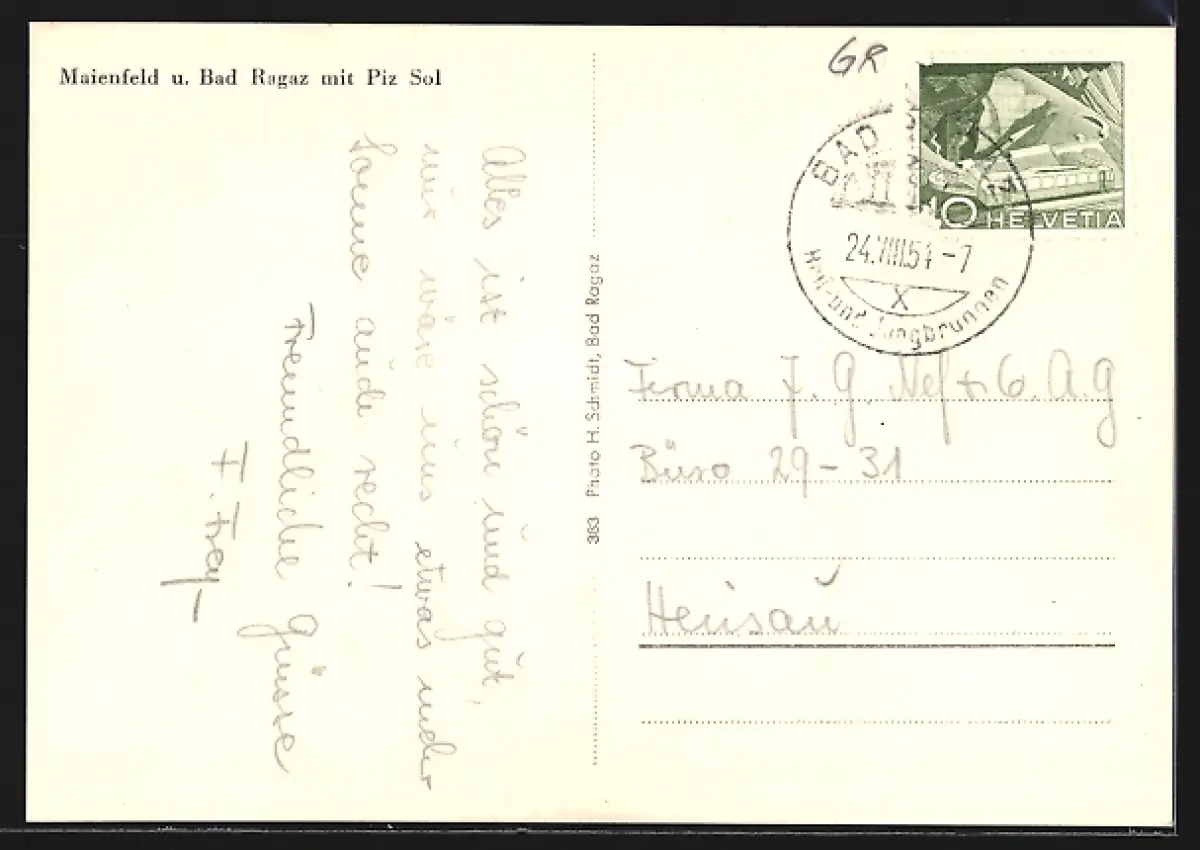 Maienfeld u. Bad Ragaz mit Piz Sol
Alles ist schön und gut,
nur wäre uns etwas mehr
Sonne auch recht!
Freundliche Grüsse
F. Frey
383 Photo H. Schmidt, Bad Ragaz
GR
10 HELVETIA
BAD
24.VIII.54-7
X
Heil- und Jungbrunnen
Firma J. G. Nef + Co. A.G
Büro 29-31
Herisau